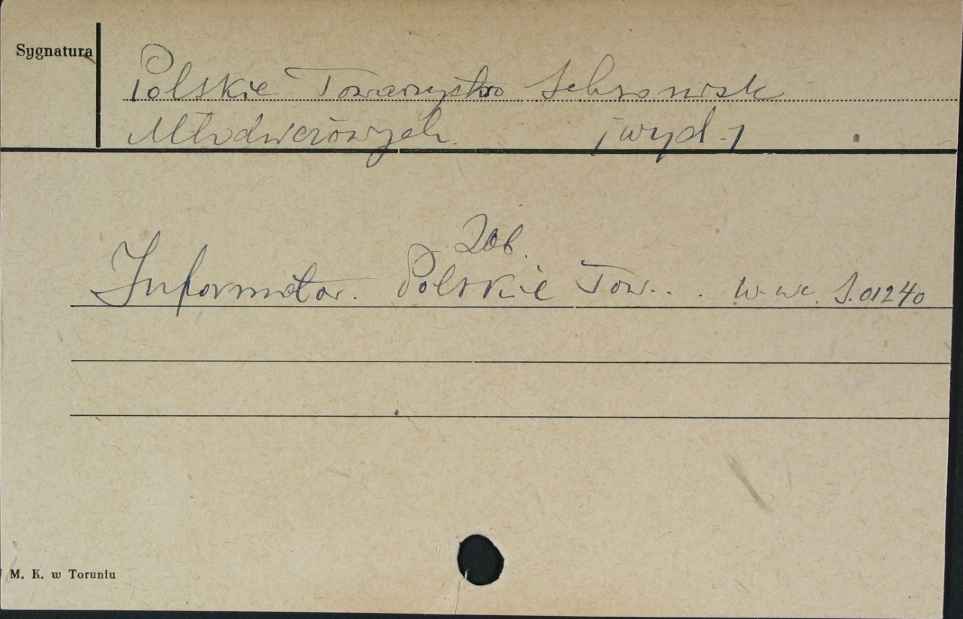 Sygnatura
Polskie Towarzystwo Schronisk
Młodzieżowych. [wyd.]
Zob.
Informator. Polskie Tow... W-wa. S.01240
M. K. w Toruniu